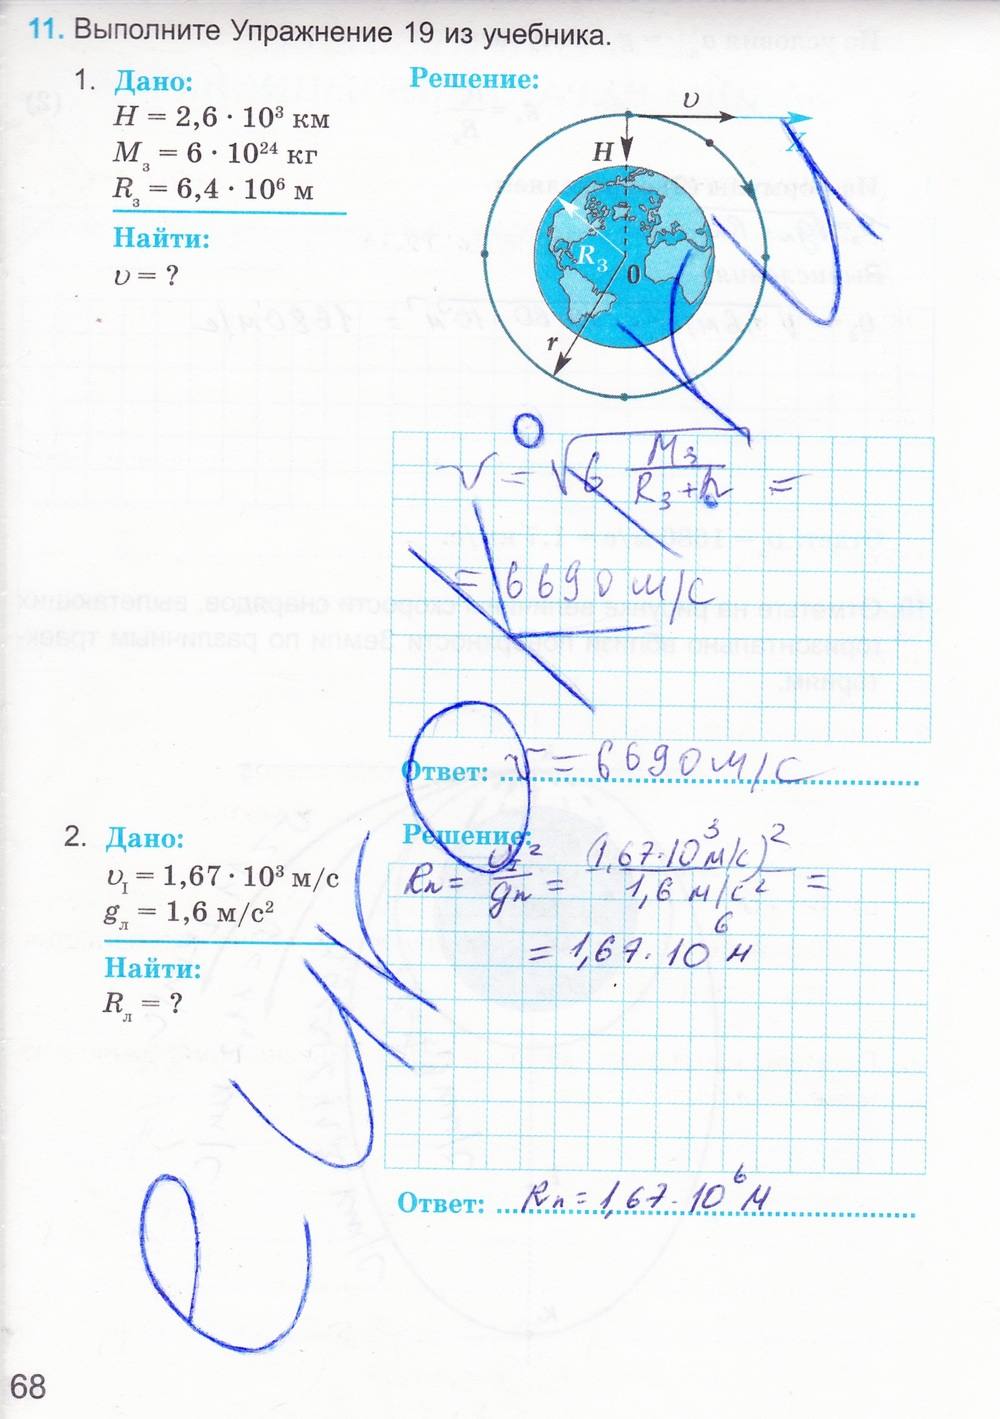 11. Выполните Упражнение 19 из учебника.
1. Дано:
H = 2,6 · 10³ км
Mз = 6 · 10²⁴ кг
Rз = 6,4 · 10⁶ м
Найти:
υ = ?
Решение:
υ
X
H
R₃
0
r
υ = √(G Mз / (Rз + h)) =
= 6690 м/с
Ответ: υ = 6690 м/с
2. Дано:
υI = 1,67 · 10³ м/с
gл = 1,6 м/с²
Найти:
Rл = ?
Решение:
Rл = υI² / gл = (1,67·10³ м/с)² / 1,6 м/с² =
= 1,67·10⁶ м
Ответ: Rл = 1,67·10⁶ м
68